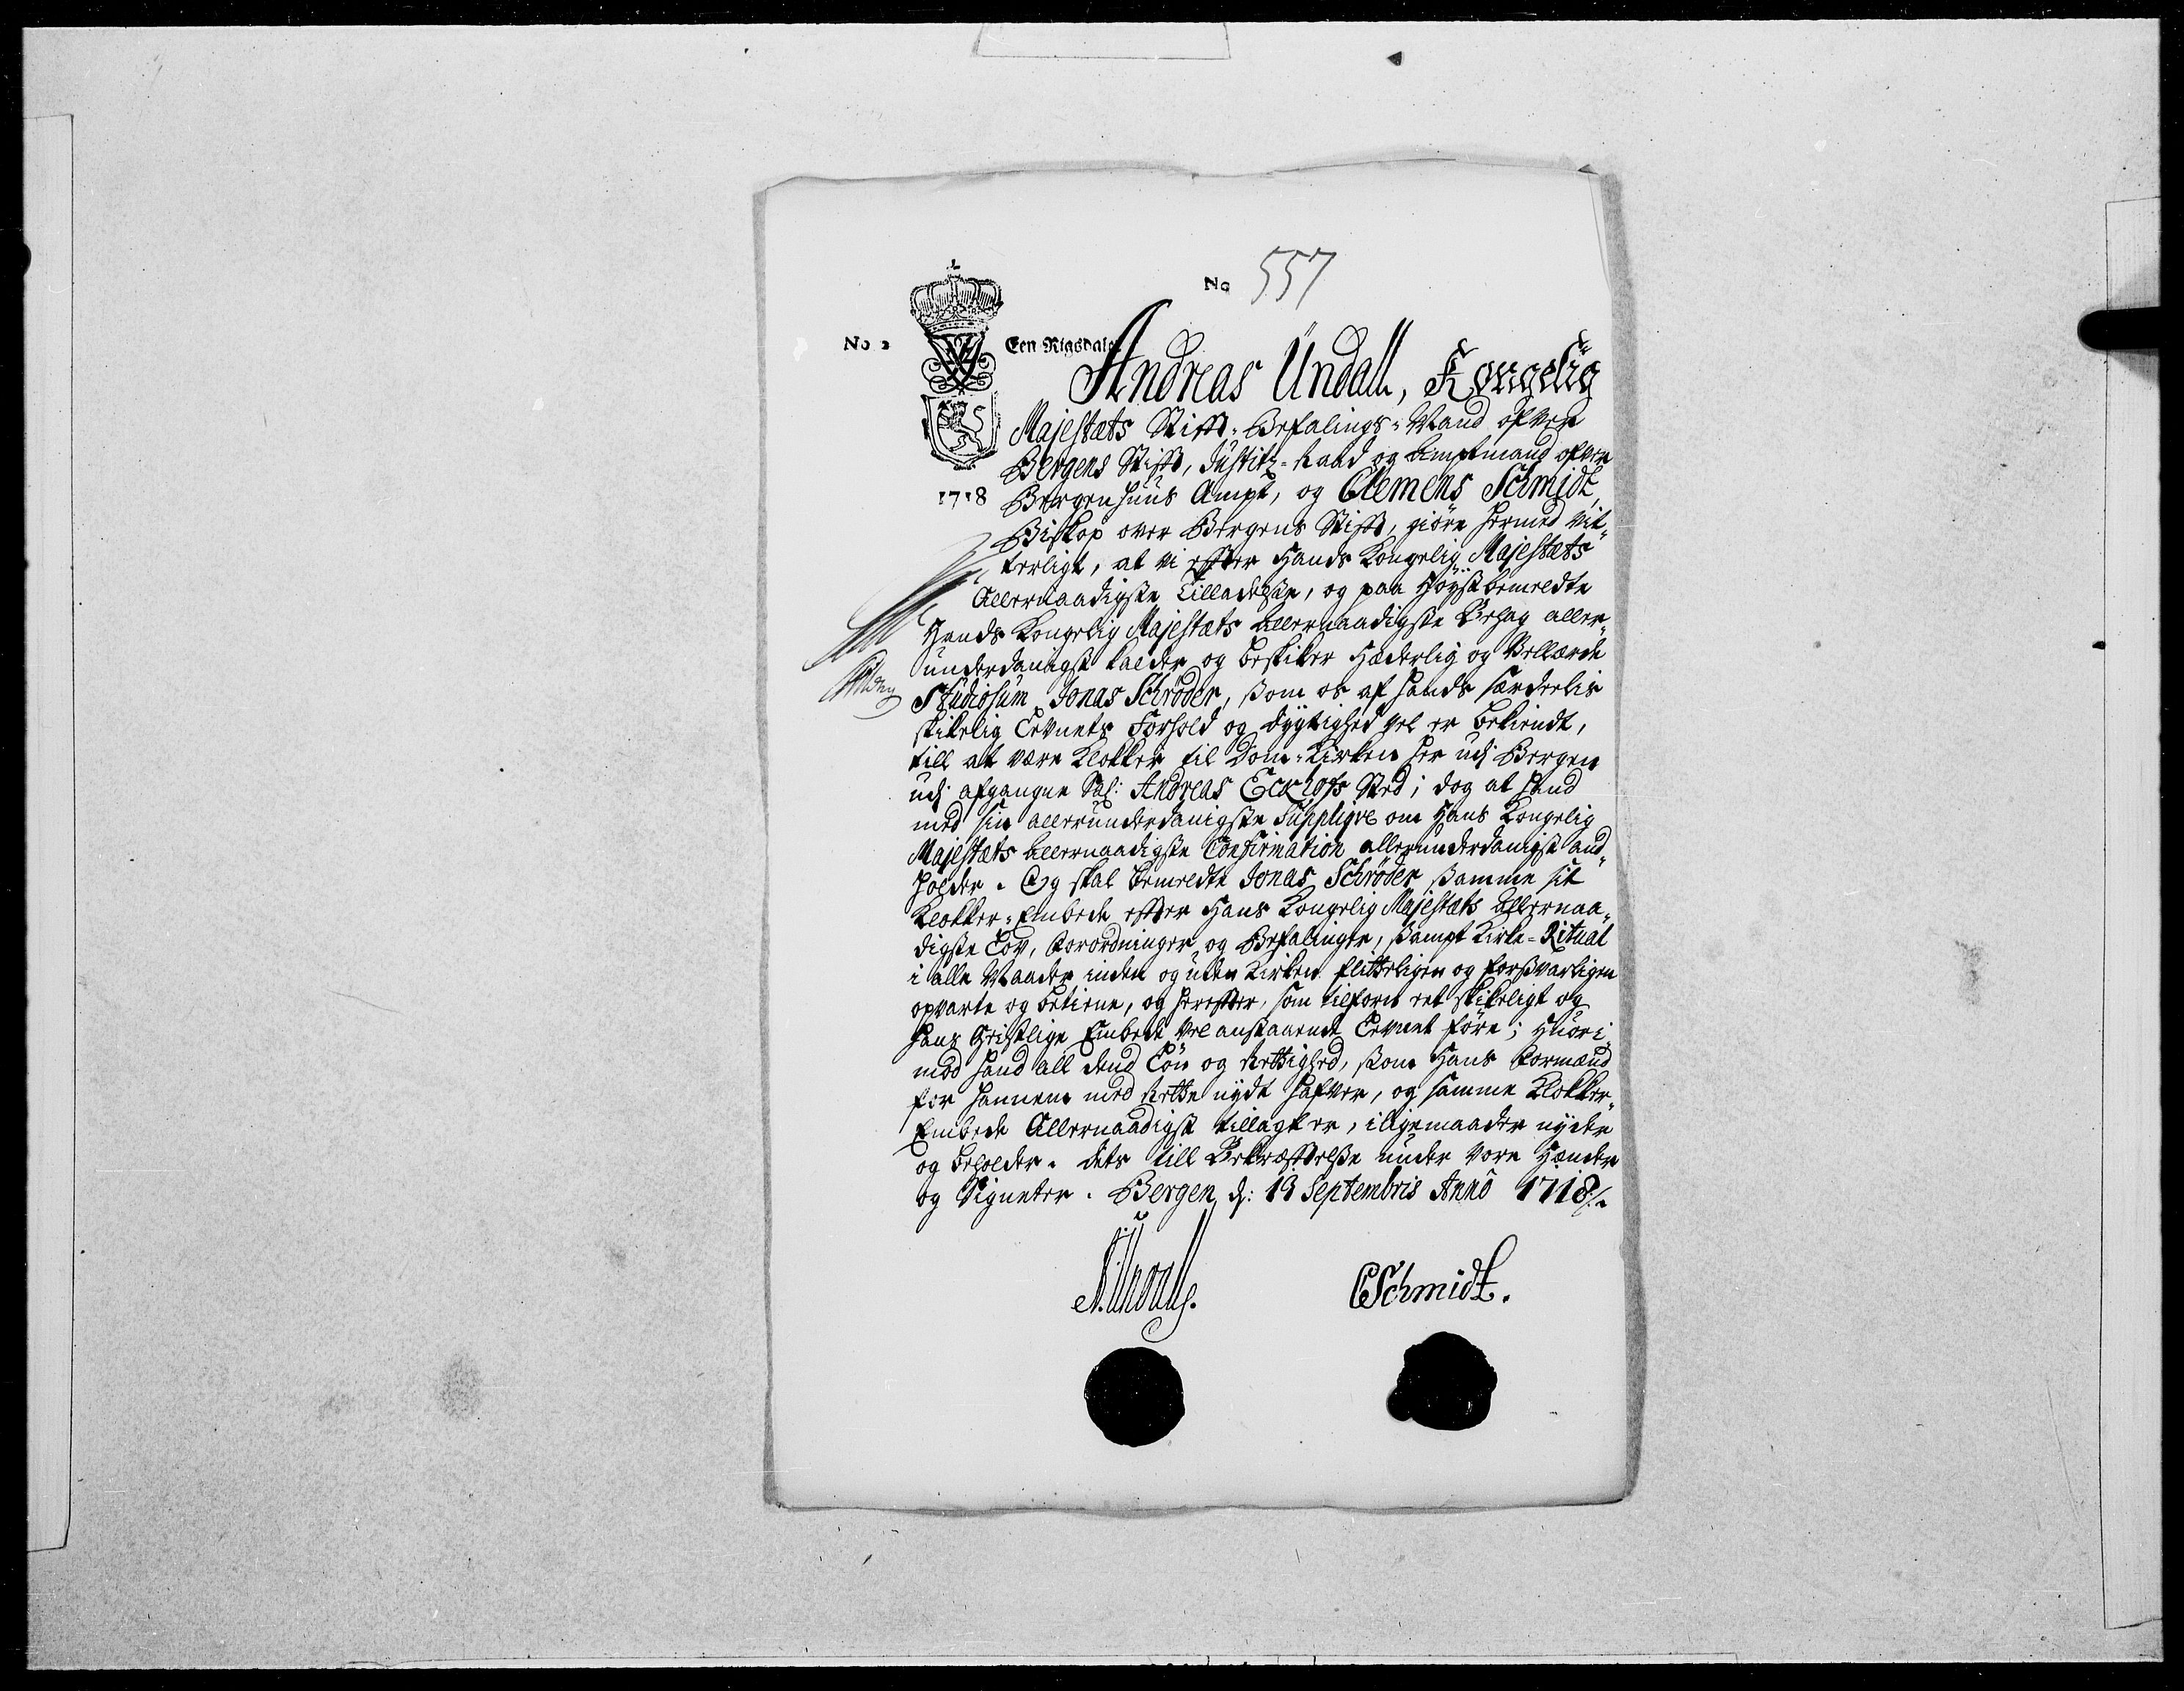 No 557
No 2
Een Rigsdaler
Andreas Undall, Kongelig
Majestæts Stifft-Befalings-Mand ofver
Bergens Stifft, Justitz-Raad og Amptmand ofver
1718
Bergenhuus Ampt, og Clemens Schmidt,
Biskop over Bergens Stifft, giöre hermed vit„
terligt, at vi effter Hands Kongelig Majestæts
Allernaadigste Tilladelße, og paa Höystbemeldte
Hands Kongelig Majestæts allernaadigste Behag aller„
underdanigst kalder og beskiker Hæderlig og Vellærde
Studiosum Jonas Schröder, ßom os af hands særdelis
skikelig Levnets Forhold og dygtighed vel er bekiendt,
till at være Klokker til Dom-Kirken her udj Bergen
udj afgangne Sal: Andreas Eckhofs Sted; dog at hand
med sin allerunderdanigste Supplique om Hans Kongelig
Majestæts allernaadigste Confirmation allerunderdanigst and„
holder. Og skal bemeldte Jonas Schröder ßamme sit
Klokker-Embede effter Hans Kongelig Majestæts allernaa„
digste Lov, Forordninger og Befalinger, ßampt Kirke-Ritual
i alle Maader inden og uden Kirken flitteligen og forßvarligen
opvarte og betiene, og hereffter, som tilforn ret skikeligt og
hans Geistlige Embede vel anstaaende Levnet före; Huori„
mod hand all dend Lön og Rettighed, ßom Hans Formænd
for hannem med Rette nydt hafver, og samme Klokker„
Embede Allernaadigst tillagt er, iligemaader nyder
og beholder. Dets till Bekræfftelße under vore Hænder
og Signeter. Bergen d: 13 Septembris Annô 1718/.
A. Undall.
CSchmidt.